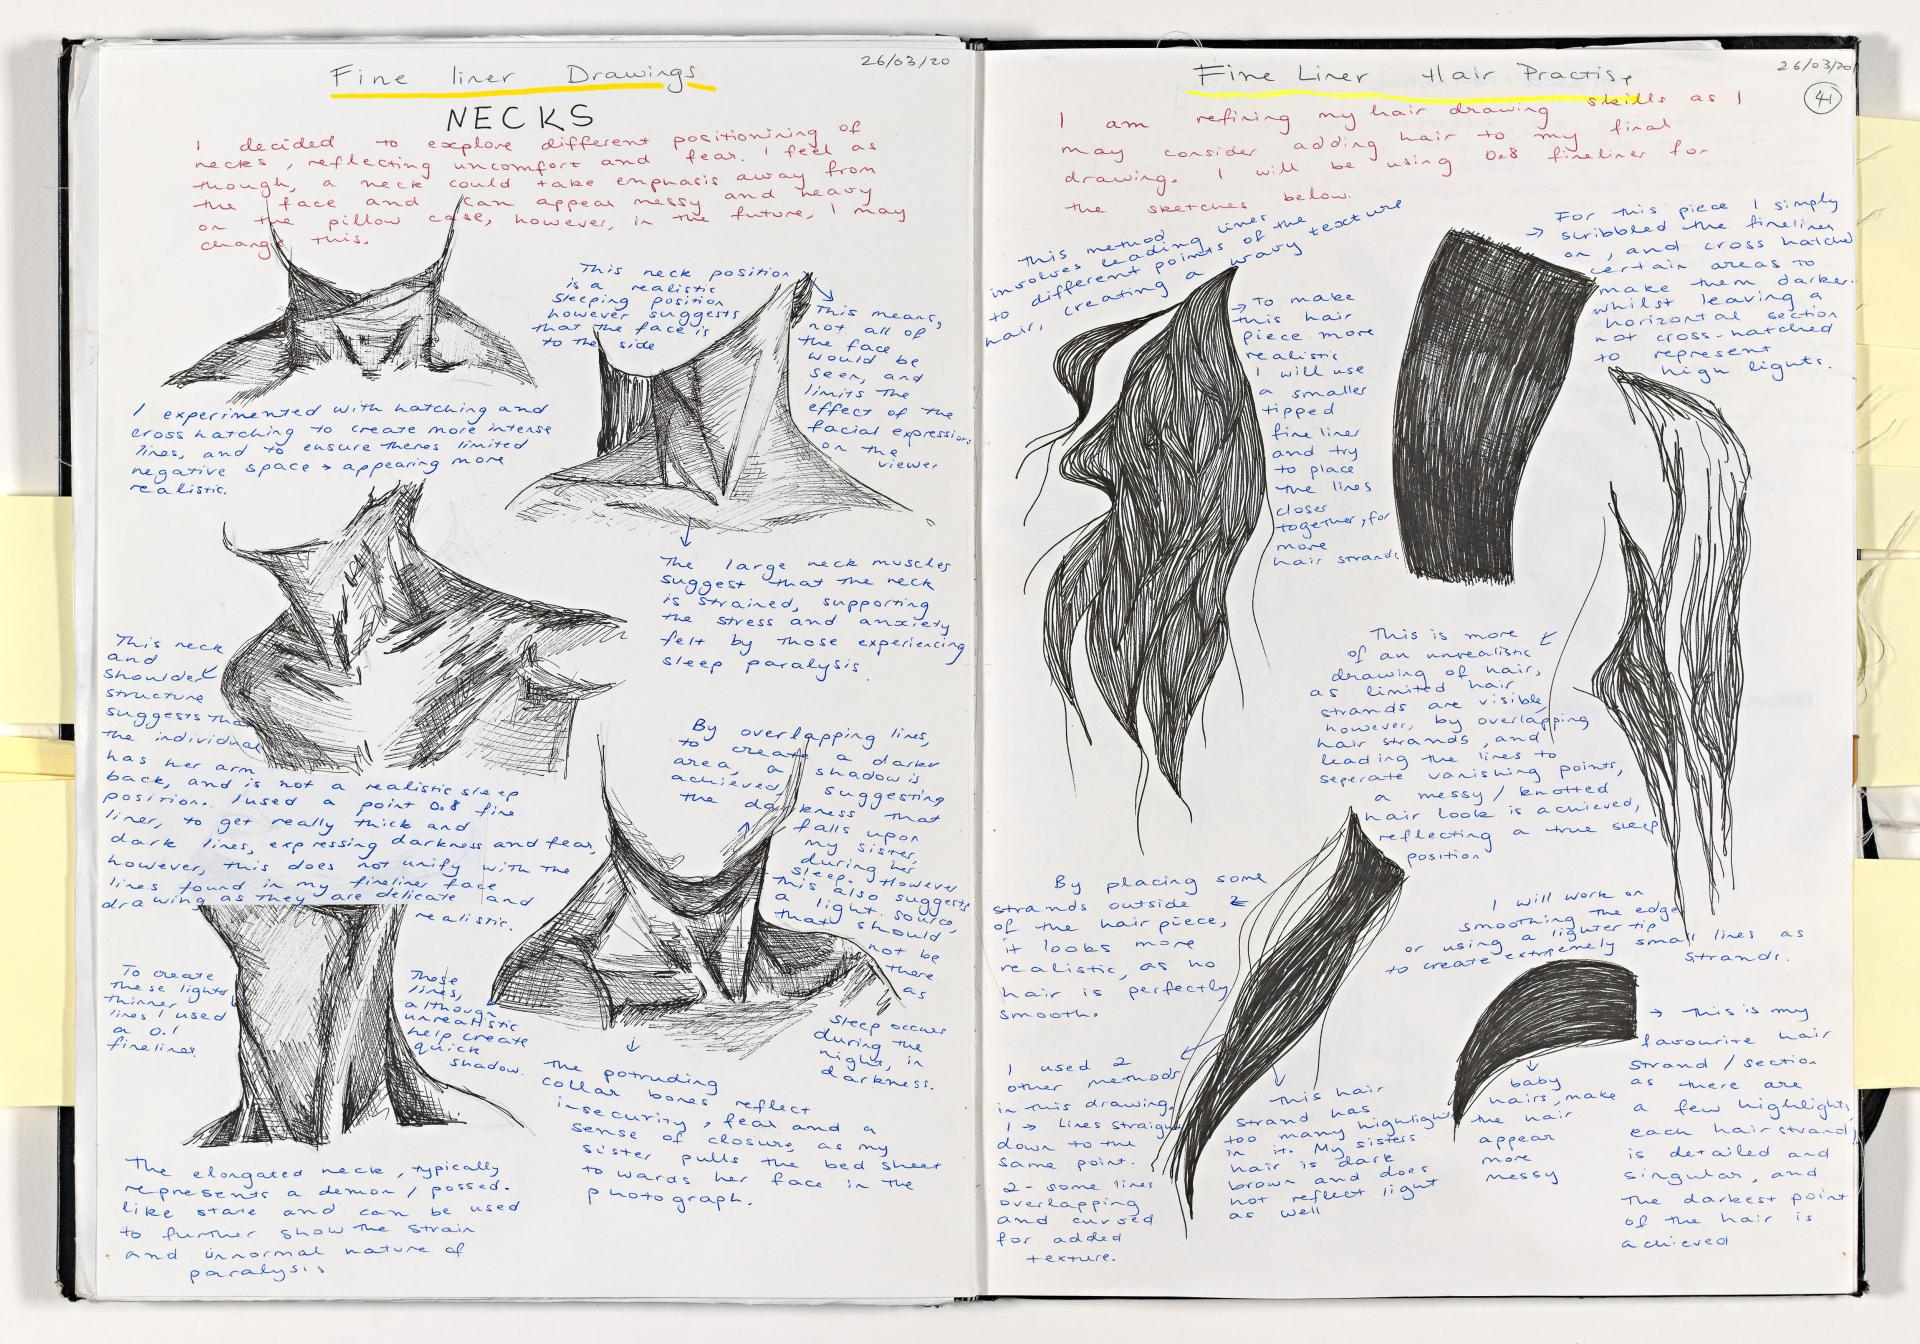 26/03/20
Fine liner Drawings
NECKS
I decided to explore different positioning of
necks, reflecting uncomfort and fear. I feel as
though, a neck could take emphasis away from
the face and can appear messy and heavy
on the pillow case, however, in the future, I may
change this.
This neck position
is a realistic
sleeping position
however suggests
that the face is
to the side
This means,
not all of
the face
would be
seen, and
limits the
effect of the
facial expression
on the
viewer
I experimented with hatching and
cross hatching to create more intense
lines, and to ensure theres limited
negative space → appearing more
realistic.
The large neck muscles
suggest that the neck
is strained, supporting
the stress and anxiety
felt by those experiencing
sleep paralysis.
This neck
and
shoulder
structure
suggests that
the individual
has her arm
back, and is not a realistic sleep
position. I used a point 0.8 fine
liner, to get really thick and
dark lines, expressing darkness and fear,
however, this does not unify with the
lines found in my fineliner face
drawing as they are delicate and
realistic.
By overlapping lines,
to create a darker
area, a shadow is
achieved, suggesting
the darkness that
falls upon
my sister,
during her
sleep. However
this also suggests
a light source,
that should
not be
there
as
sleep occurs
during the
night, in
darkness.
To create
these lights
thinner
lines I used
a 0.1
fineliner.
These
lines,
although
unrealistic
help create
quick
shadow.
The potruding
collar bones reflect
insecurity, fear and a
sense of closure, as my
sister pulls the bed sheet
towards her face in the
photograph.
The elongated neck, typically
represents a demon / possed.
like stare and can be used
to further show the strain
and unnormal nature of
paralysis
26/03/20
41
Fine Liner Hair Practise
I am refining my hair drawing skills as I
may consider adding hair to my final
drawing. I will be using 0.8 fineliner for
the sketches below.
This method
involves leading lines
to different points of the
hair, creating a wavy texture
→ To make
this hair
piece more
realistic
I will use
a smaller
tipped
fine liner
and try
to place
the lines
closer
together, for
more
hair strands
→ For this piece I simply
scribbled the fineliner
on, and cross hatched
certain areas to
make them darker.
whilst leaving a
horizontal section
not cross-hatched
to represent
high lights.
This is more
of an unrealistic
drawing of hair,
as limited hair
strands are visible,
however, by overlapping
hair strands, and
leading the lines to
seperate vanishing points,
a messy / knotted
hair look is achieved,
reflecting a true sleep
position
By placing some
strands outside
of the hair piece,
it looks more
realistic, as no
hair is perfectly
smooth.
I will work on
smoothing the edge
or using a lighter tip
to create extremely small lines as
strands.
I used 2
other methods
in this drawing.
1 → Lines straight
down to the
same point.
2 - some lines
overlapping
and curved
for added
texture.
This hair
strand has
too many highlights
in it. My sisters
hair is dark
brown and does
not reflect light
as well
baby
hairs, make
the hair
appear
more
messy
→ This is my
favourite hair
strand / section
as there are
a few highlights,
each hair strand
is detailed and
singular, and
the darkest point
of the hair is
achieved